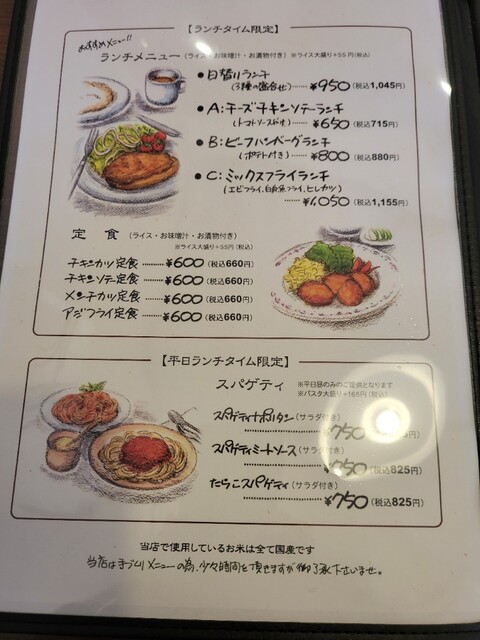 【ランチタイム限定】
おすすめメニュー!!
ランチメニュー (ライス・お味噌汁・お漬物付き) ※ライス大盛り+55円(税込)
●日替りランチ
(3種の盛合せ)……¥950(税込1,045円)
●A:チーズチキンソテーランチ
(トマトソースがけ)……¥650(税込715円)
●B:ビーフハンバーグランチ
(ポテト付き)……¥800(税込880円)
●C:ミックスフライランチ
(エビフライ、白身魚フライ、ヒレカツ)
……¥1,050(税込1,155円)
定食 (ライス・お味噌汁・お漬物付き)
※ライス大盛り+55円(税込)
チキンカツ定食……¥600(税込660円)
チキンソテー定食……¥600(税込660円)
メンチカツ定食……¥600(税込660円)
アジフライ定食……¥600(税込660円)
【平日ランチタイム限定】
スパゲティ ※平日昼のみのご提供となります
※パスタ大盛り+165円(税込)
スパゲティナポリタン(サラダ付き)
……¥750
スパゲティミートソース(サラダ付き)
……¥750(税込825円)
たらこスパゲティ(サラダ付き)
……¥750(税込825円)
当店で使用しているお米は全て国産です
当店は手づくりメニューの為、少々時間を頂きますが御了承下さいませ。